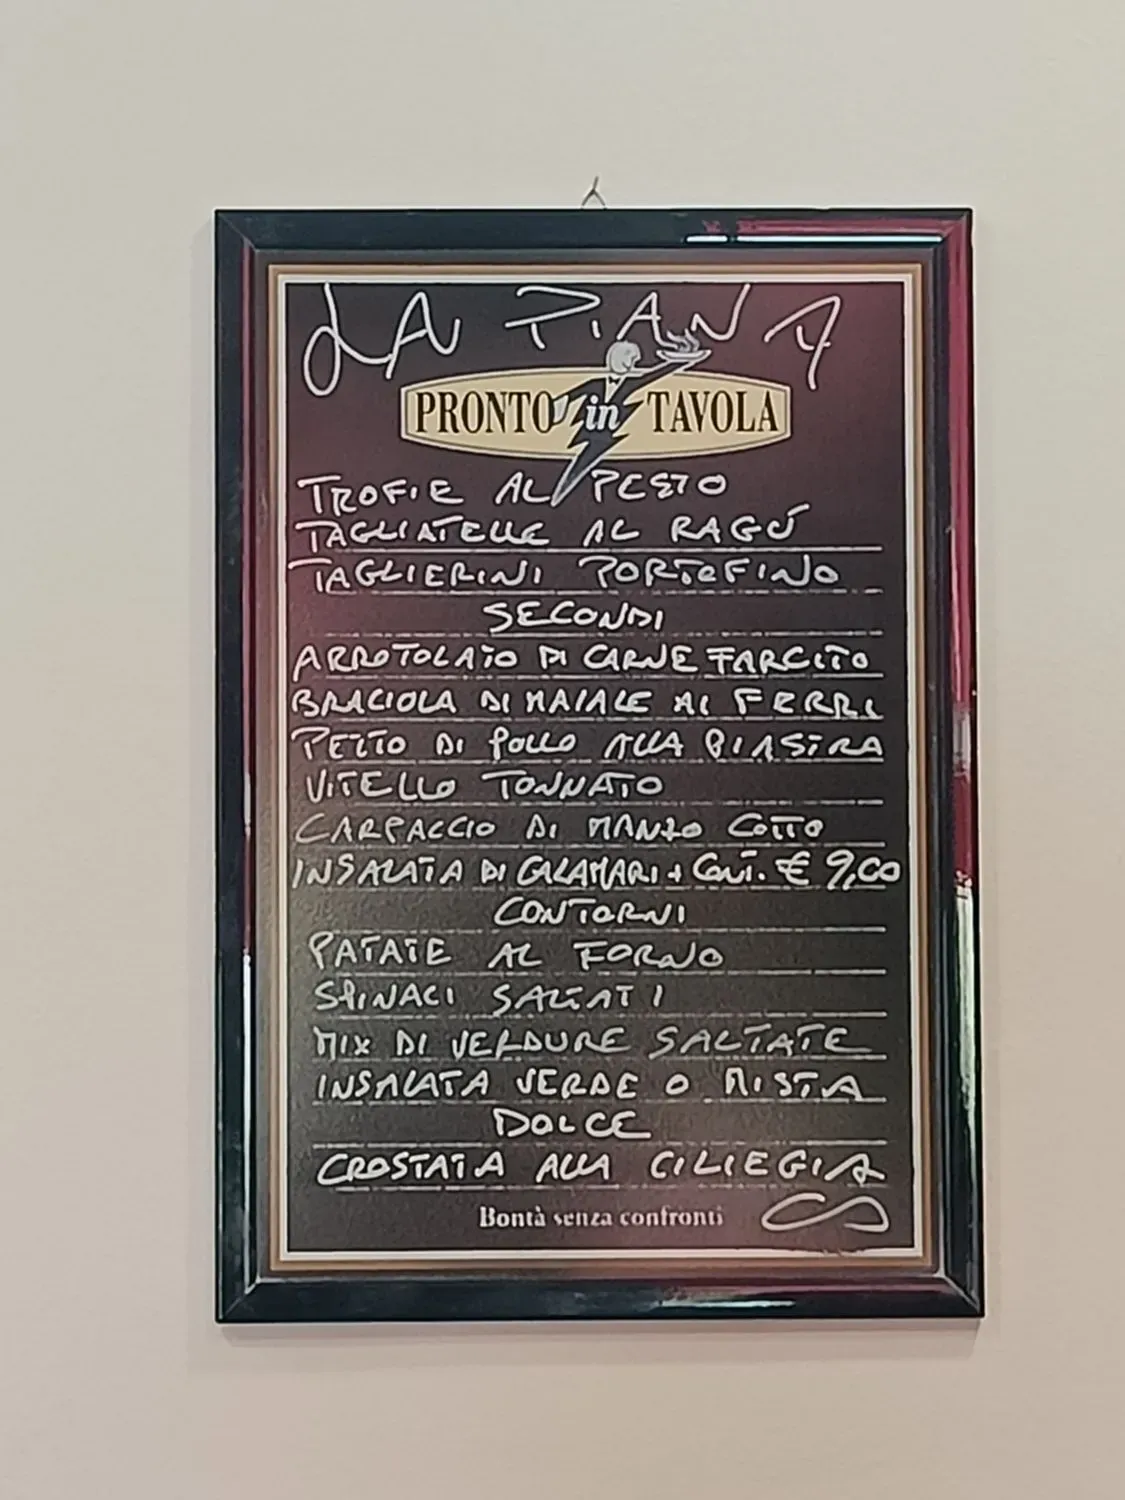 LA PIANA
PRONTO in TAVOLA
TROFIE AL PESTO
TAGLIATELLE AL RAGÚ
TAGLIERINI PORTOFINO
SECONDI
ARROTOLATO DI CARNE FARCITO
BRACIOLA DI MAIALE AI FERRI
PETTO DI POLLO ALLA PIASTRA
VITELLO TONNATO
CARPACCIO DI MANZO COTTO
INSALATA DI CALAMARI + CONT. € 9,00
CONTORNI
PATATE AL FORNO
SPINACI SALTATI
MIX DI VERDURE SALTATE
INSALATA VERDE O MISTA
DOLCE
CROSTATA ALLA CILIEGIA
Bontà senza confronti